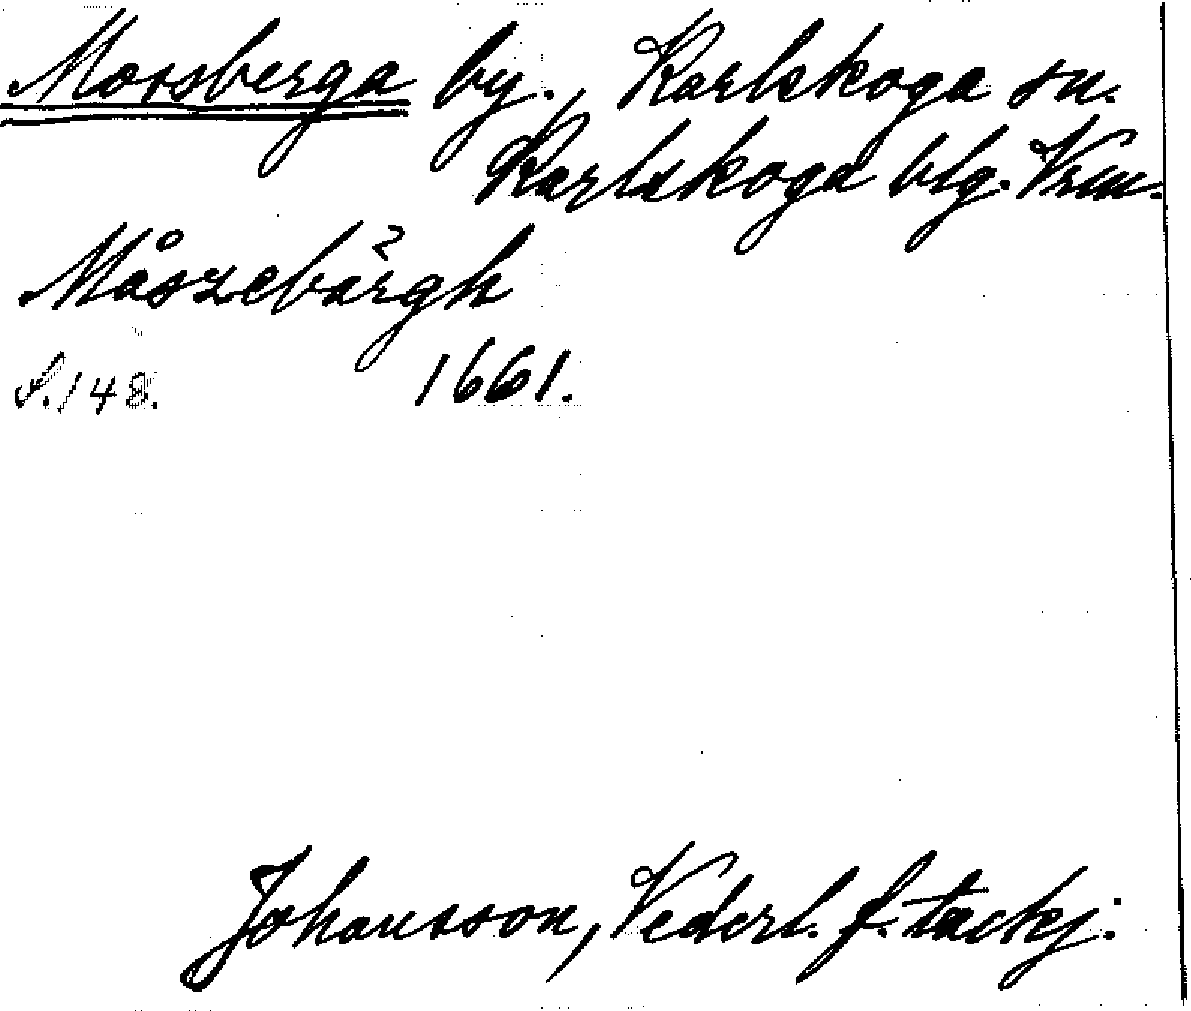 Mossberga by., Karlskoga sn.
Karlskoga blg. Vrm.
Måszebärgh
S. 148. 1661.
Johansson, Vederl. f. tackj: